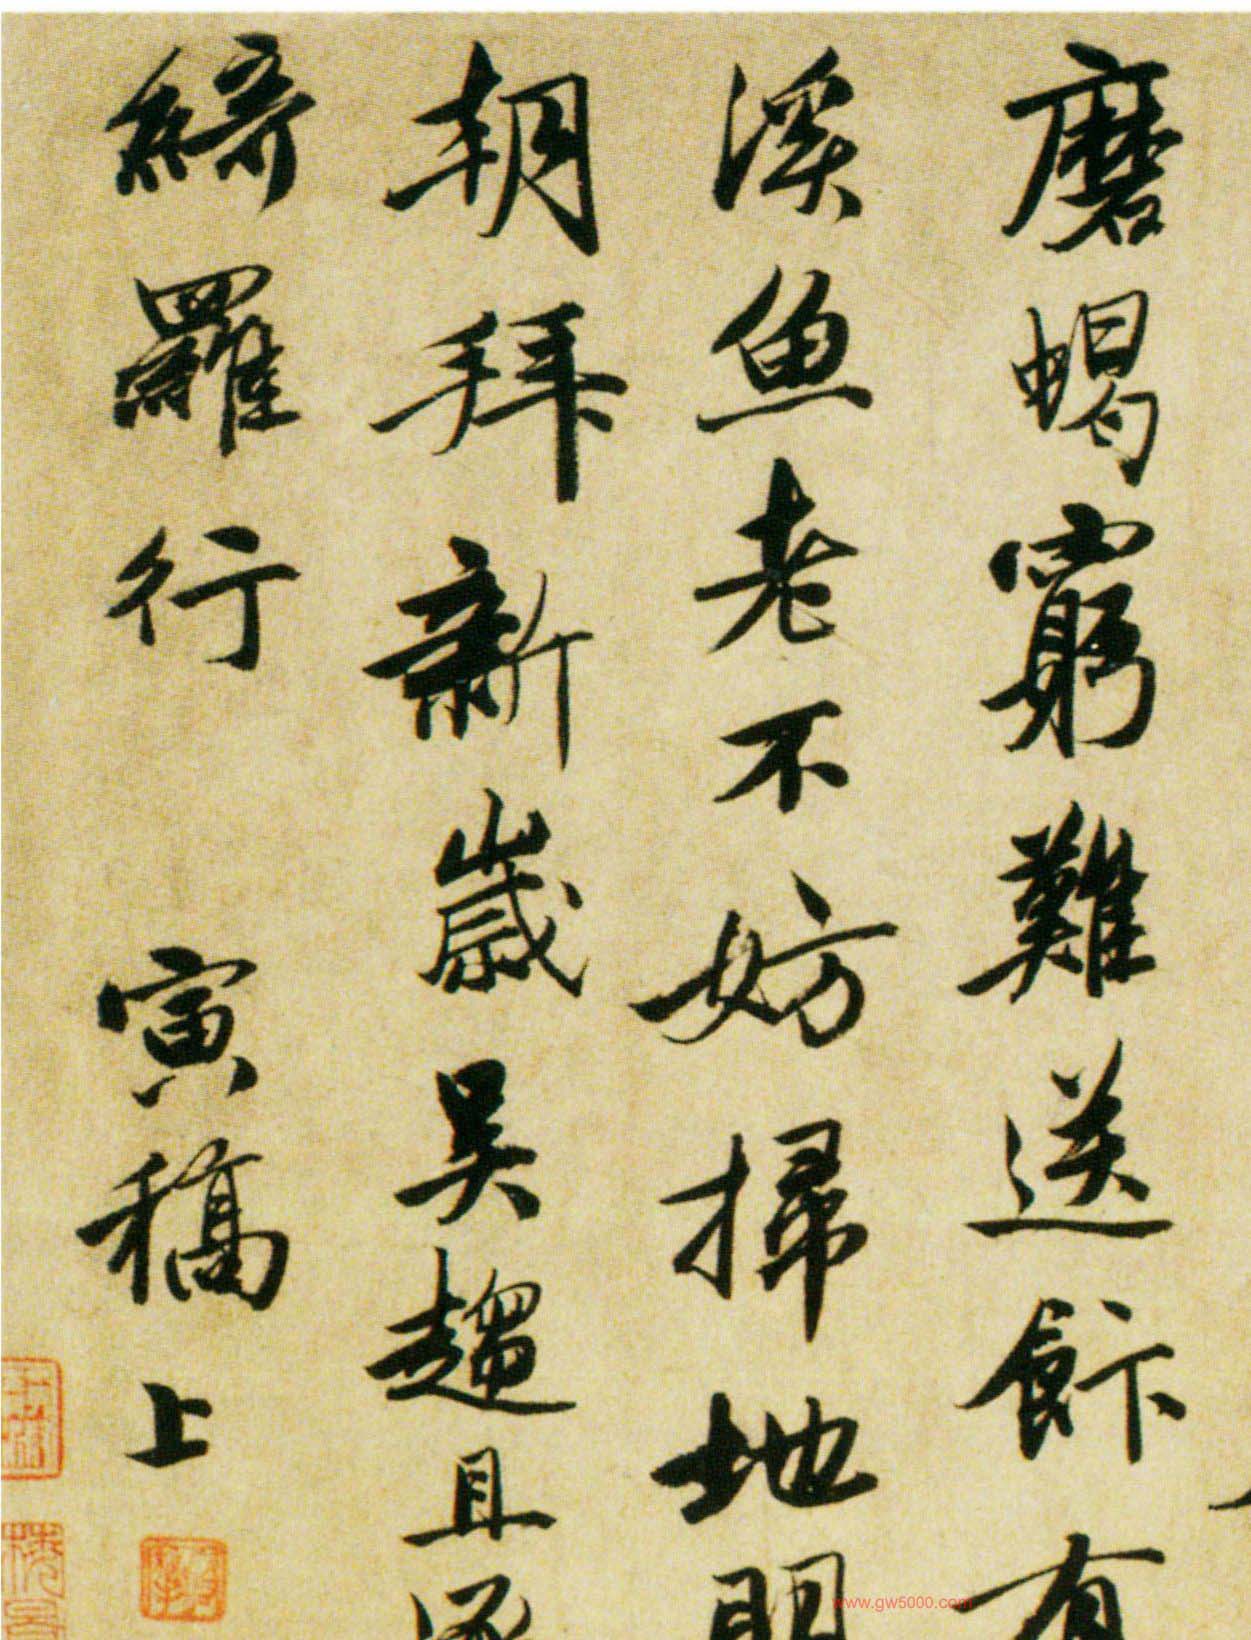 磨蝎窮難送飰有
溪鱼老不妨掃地明
朝拜新歲吴趨且逐
綺羅行
寅稿上
www.gw5000.com